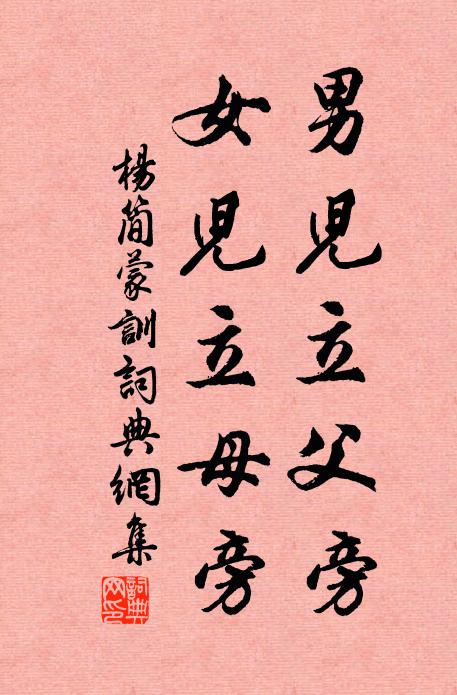 男兒立父旁
女兒立母旁
楊簡蒙訓詞典網集
詞典
网印